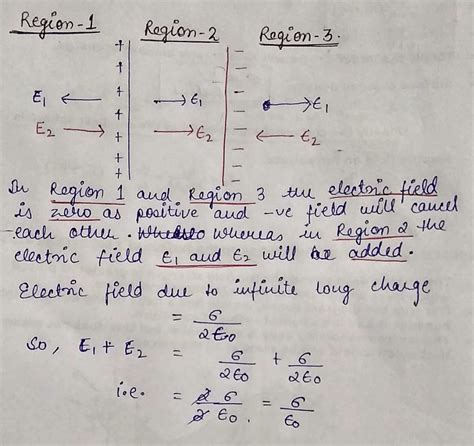 Region-1 Region-2 Region-3.
+ -
+ -
+ -
E1 ← + → E1 - → E1
+ -
E2 → + → E2 - ← E2
+ -
+ -
+ -
In Region 1 and Region 3 the electric field
is zero as positive and -ve field will cancel
each other. whereas in Region 2 the
electric field E1 and E2 will be added.
Electric field due to infinite long charge
= σ/2ε0
So, E1 + E2 = σ/2ε0 + σ/2ε0
i.e. = 2σ/2ε0 = σ/ε0